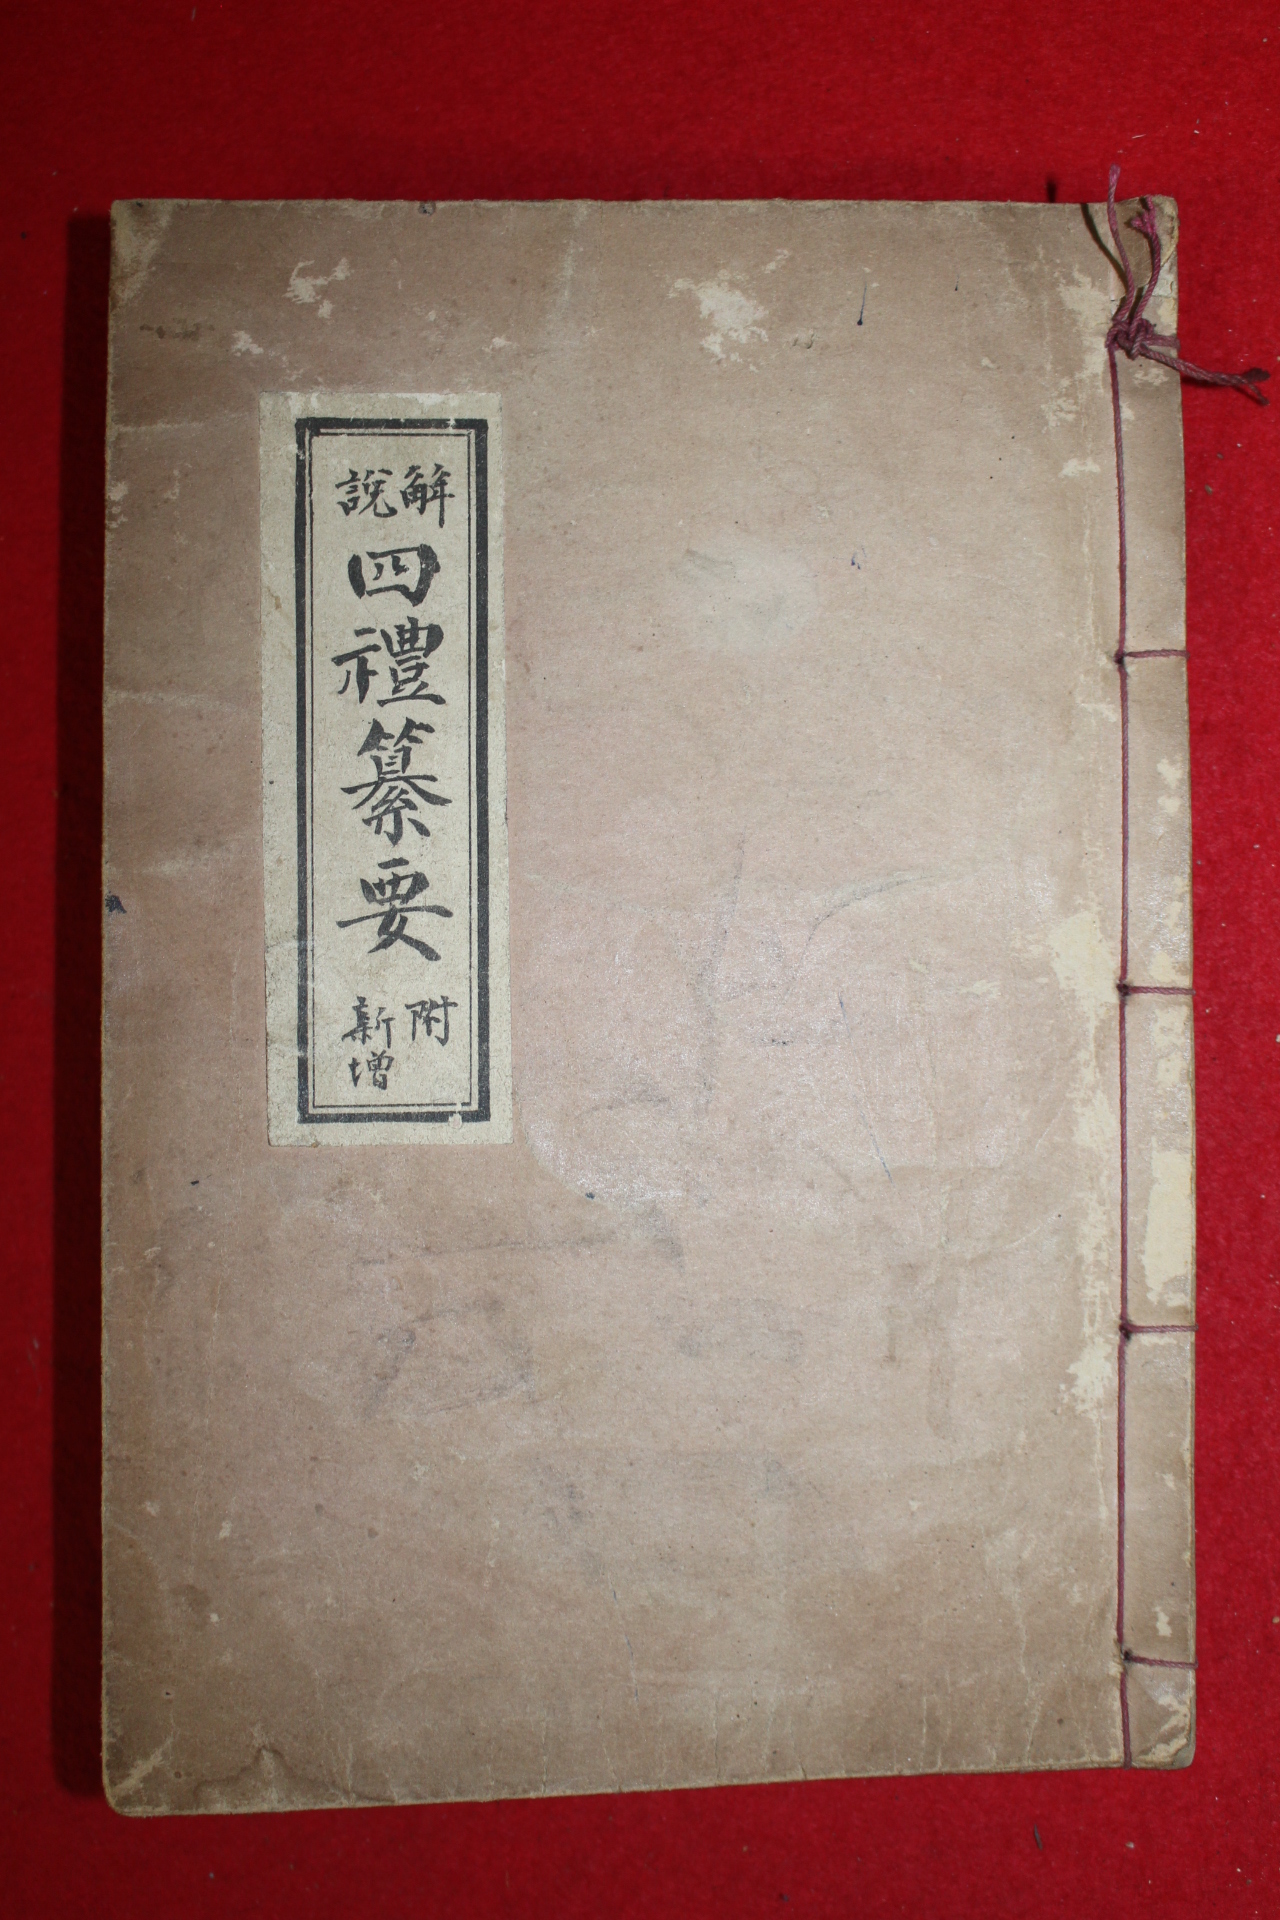 解說
四禮纂要
附
新增